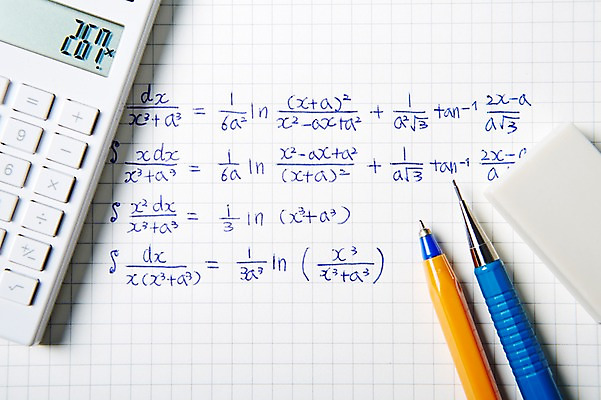 dx/(x³+a³) = 1/(6a²) ln (x+a)²/(x²-ax+a²) + 1/(a²√3) tan⁻¹ (2x-a)/(a√3)
∫ x dx/(x³+a³) = 1/(6a) ln (x²-ax+a²)/(x+a)² + 1/(a√3) tan⁻¹ (2x-a)/a
∫ x² dx/(x³+a³) = 1/3 ln (x³+a³)
∫ dx/(x(x³+a³)) = 1/(3a³) ln (x³/(x³+a³))
=
+
9
-
6
×
÷
+/-
√